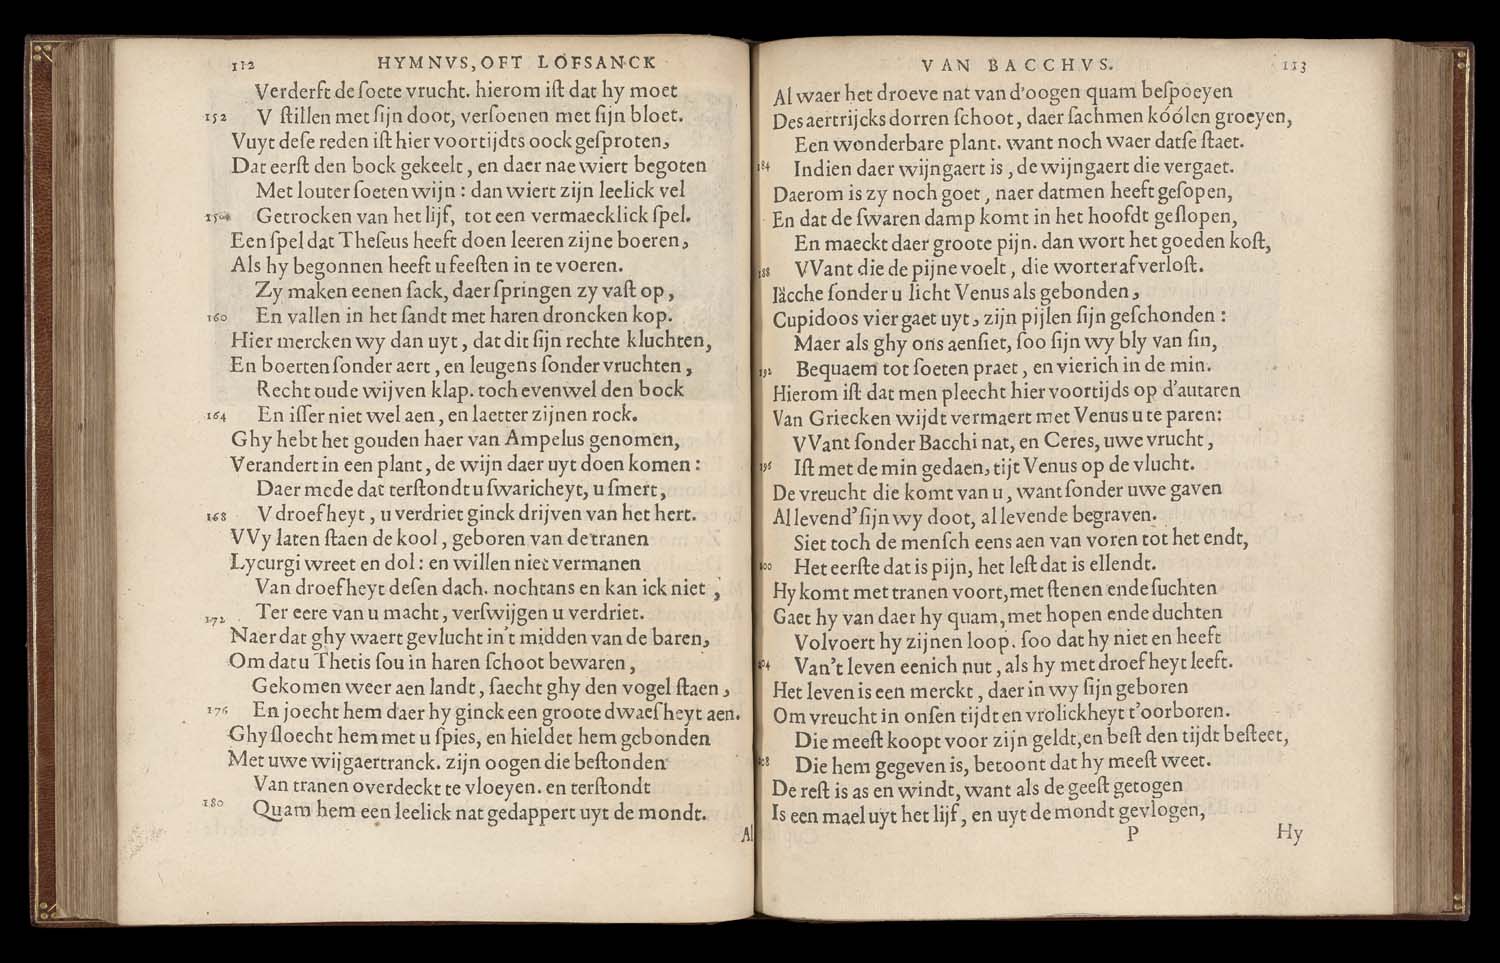 112 HYMNVS, OFT LOFSANCK
Verderft de ſoete vrucht. hierom iſt dat hy moet
152 V ſtillen met ſijn doot, verſoenen met ſijn bloet.
Vuyt deſe reden iſt hier voortijdts oock geſproten,
Dat eerſt den bock gekeelt, en daer nae wiert begoten
Met louter ſoeten wijn: dan wiert zijn leelick vel
Getrocken van het lijf, tot een vermaecklick ſpel.
Een ſpel dat Theſeus heeft doen leeren zijne boeren,
Als hy begonnen heeft u feeſten in te voeren.
Zy maken eenen ſack, daer ſpringen zy vaſt op,
160 En vallen in het ſandt met haren droncken kop.
Hier mercken wy dan uyt, dat dit ſijn rechte kluchten,
En boerten ſonder aert, en leugens ſonder vruchten,
Recht oude wijven klap. toch evenwel den bock
164 En iſſer niet wel aen, en laetter zijnen rock.
Ghy hebt het gouden haer van Ampelus genomen,
Verandert in een plant, de wijn daer uyt doen komen:
Daer mede dat terſtondt u ſwaricheyt, u ſmert,
168 V droefheyt, u verdriet ginck drijven van het hert.
VVy laten ſtaen de kool, geboren van de tranen
Lycurgi wreet en dol: en willen niet vermanen
Van droefheyt deſen dach. nochtans en kan ick niet,
172 Ter eere van u macht, verſwijgen u verdriet.
Naer dat ghy waert gevlucht in't midden van de baren,
Om dat u Thetis ſou in haren ſchoot bewaren,
Gekomen weer aen landt, ſaecht ghy den vogel ſtaen,
176 En joecht hem daer hy ginck een groote dwaeſheyt aen.
Ghy ſloecht hem met u ſpies, en hieldet hem gebonden
Met uwe wijgaertranck. zijn oogen die beſtonden
Van tranen overdeckt te vloeyen. en terſtondt
180 Quam hem een leelick nat gedappert uyt de mondt.
Al
VAN BACCHVS. 113
Al waer het droeve nat van d'oogen quam beſpoeyen
Des aertrijcks dorren ſchoot, daer ſachmen kóólen groeyen,
Een wonderbare plant. want noch waer datſe ſtaet.
184 Indien daer wijngaert is, de wijngaert die vergaet.
Daerom is zy noch goet, naer datmen heeft geſopen,
En dat de ſwaren damp komt in het hoofdt geſlopen,
En maeckt daer groote pijn. dan wort het goeden koſt,
188 VVant die de pijne voelt, die worter af verloſt.
Iäcche ſonder u licht Venus als gebonden,
Cupidoos vier gaet uyt, zijn pijlen ſijn geſchonden:
Maer als ghy ons aenſiet, ſoo ſijn wy bly van ſin,
192 Bequaem tot ſoeten praet, en vierich in de min.
Hierom iſt dat men pleecht hier voortijds op d'autaren
Van Griecken wijdt vermaert met Venus u te paren:
VVant ſonder Bacchi nat, en Ceres, uwe vrucht,
196 Iſt met de min gedaen, tijt Venus op de vlucht.
De vreucht die komt van u, want ſonder uwe gaven
Al levend' ſijn wy doot, al levende begraven.
Siet toch de menſch eens aen van voren tot het endt,
200 Het eerſte dat is pijn, het leſt dat is ellendt.
Hy komt met tranen voort, met ſtenen ende ſuchten
Gaet hy van daer hy quam, met hopen ende duchten
Volvoert hy zijnen loop. ſoo dat hy niet en heeft
204 Van't leven eenich nut, als hy met droefheyt leeft.
Het leven is een merckt, daer in wy ſijn geboren
Om vreucht in onſen tijdt en vrolickheyt t'oorboren.
Die meeſt koopt voor zijn geldt, en beſt den tijdt beſteet,
208 Die hem gegeven is, betoont dat hy meeſt weet.
De reſt is as en windt, want als de geeſt getogen
Is een mael uyt het lijf, en uyt de mondt gevlogen,
P Hy